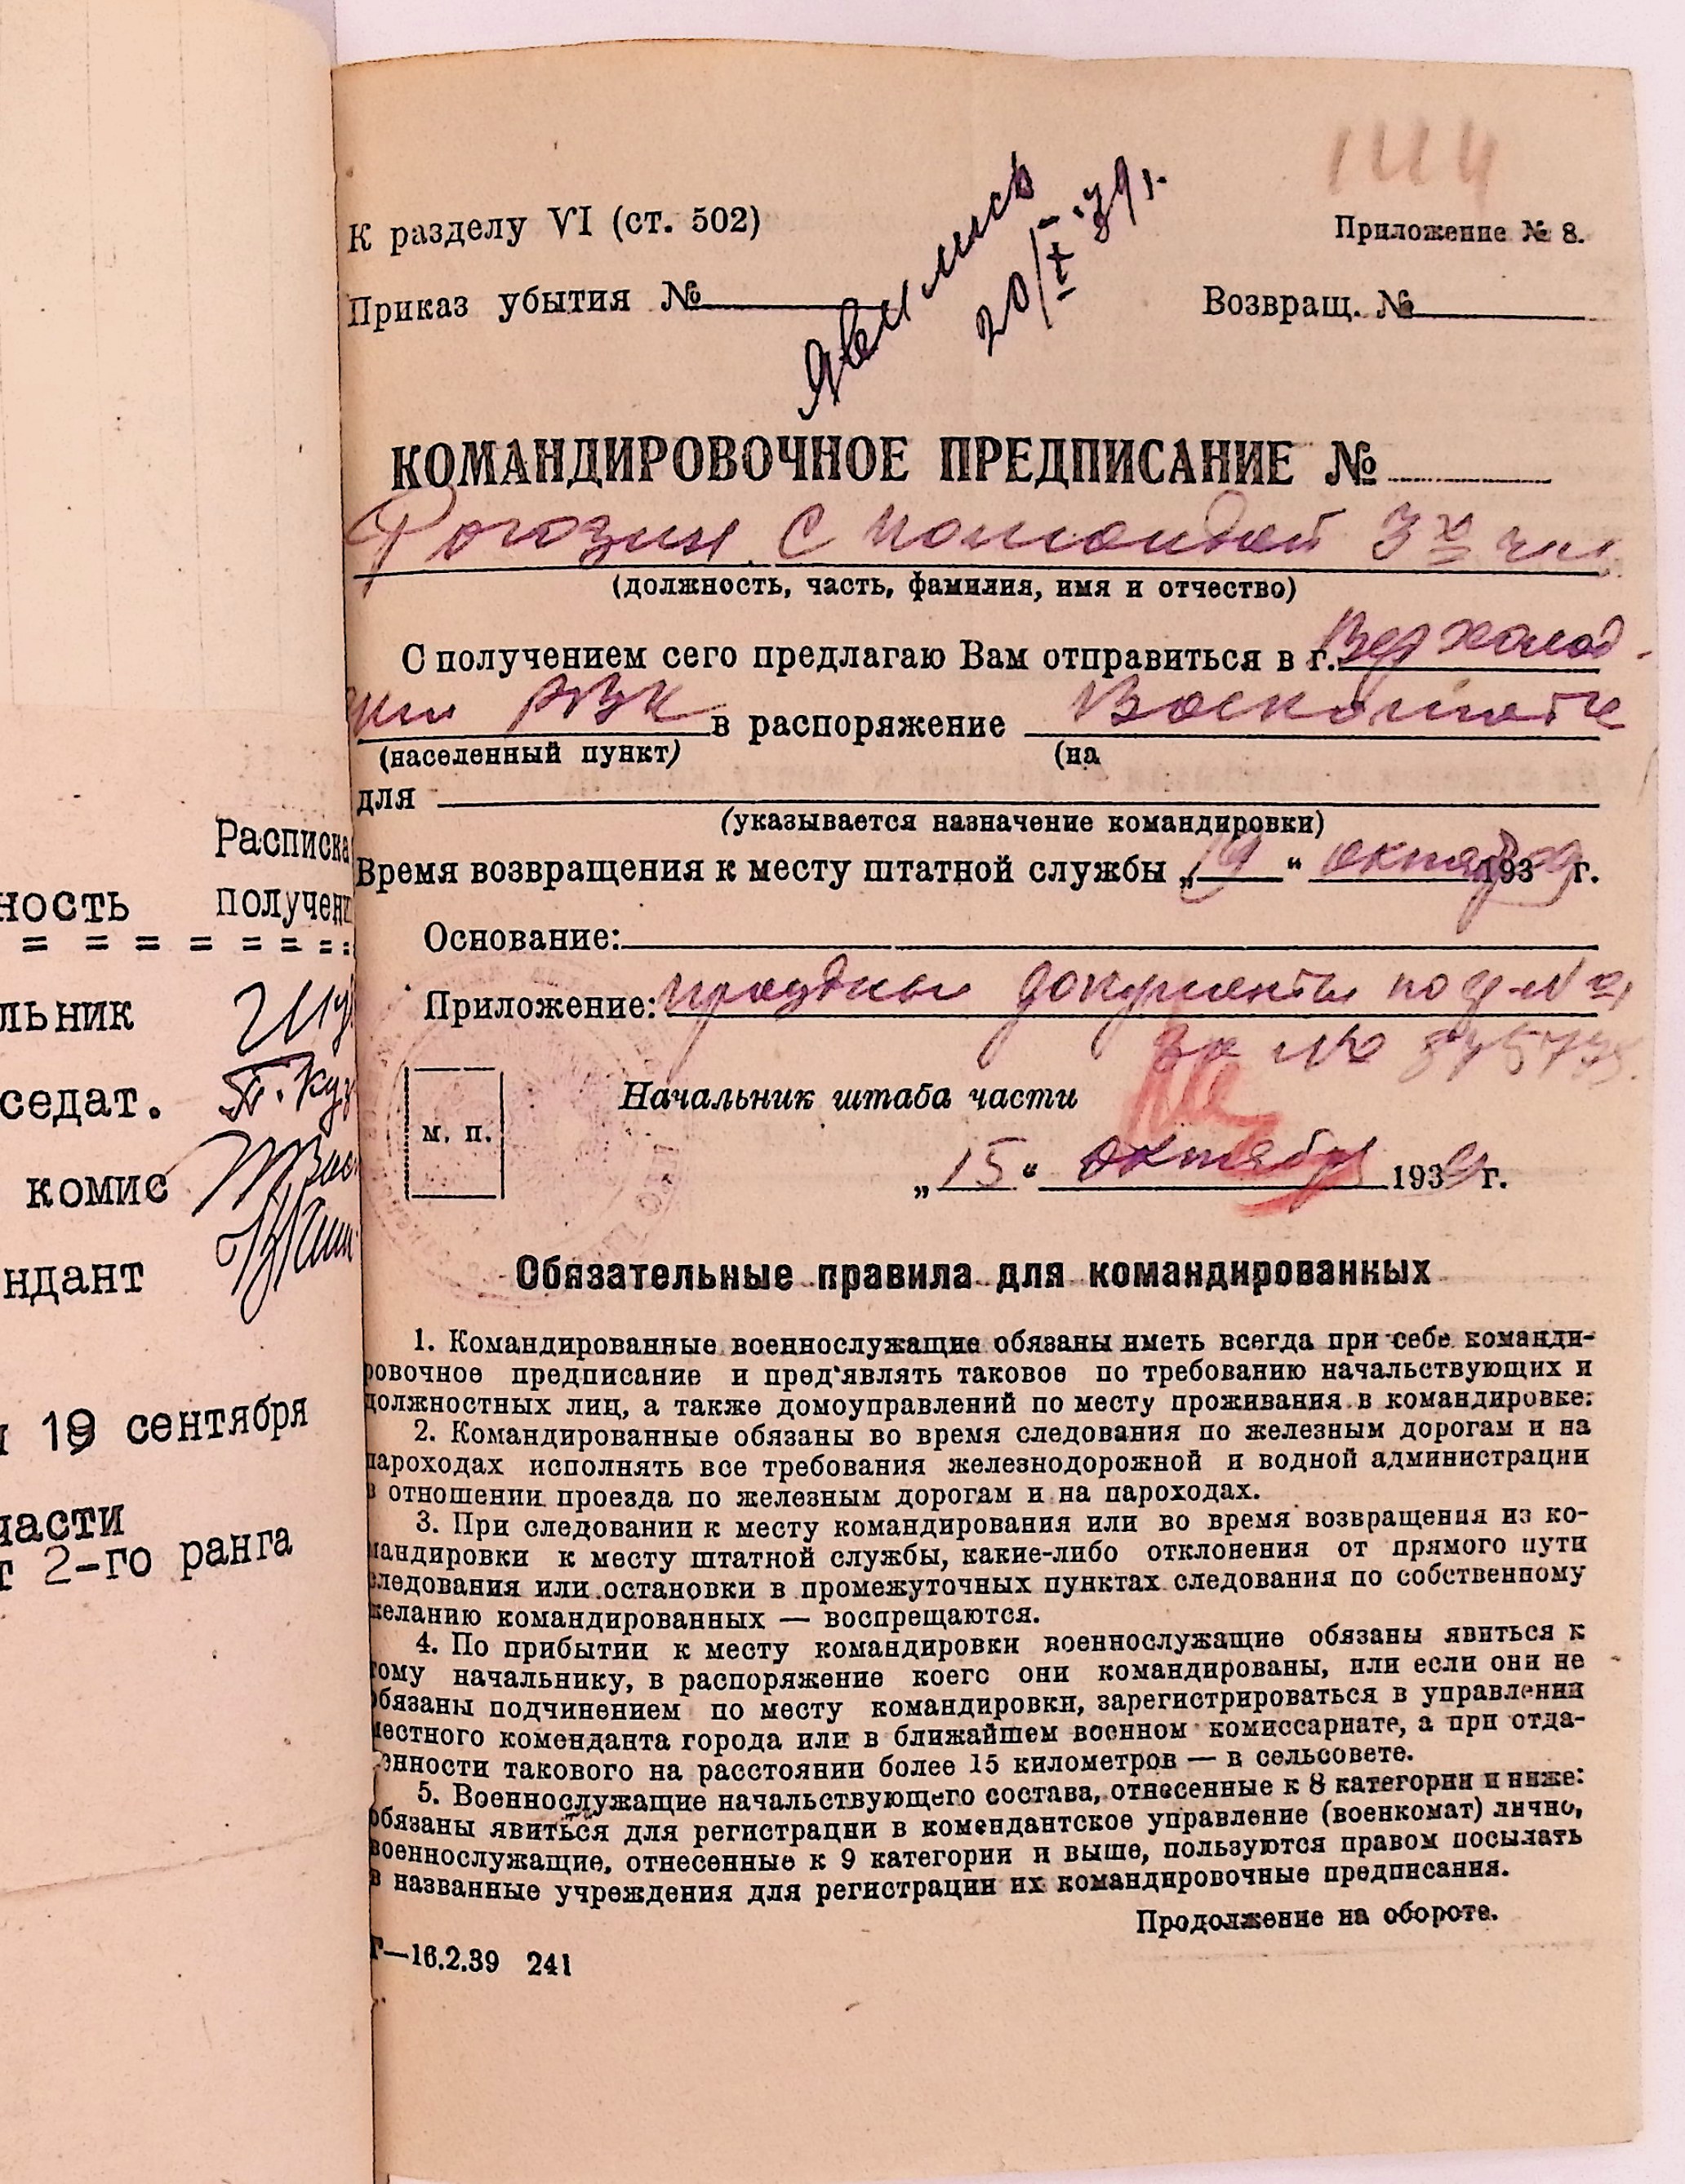 Расписка
ность получени
= = = = = = = = =
льник
седат.
комис
ндант
19 сентября
части
т 2-го ранга
К разделу VI (ст. 502)
Приложение № 8.
Приказ убытия №
Возвращ. №
Явились
20/X-39 г.
КОМАНДИРОВОЧНОЕ ПРЕДПИСАНИЕ №
Рогозин с командой 3х чел
(должность, часть, фамилия, имя и отчество)
С получением сего предлагаю Вам отправиться в г.
РВК в распоряжение
(населенный пункт) (на
для
(указывается назначение командировки)
Время возвращения к месту штатной службы „19“ октября 1939 г.
Основание:
Приложение: документы по ф-№ 2,
за №
Начальник штаба части
м. п.
„15“ октября 1939 г.
Обязательные правила для командированных
1. Командированные военнослужащие обязаны иметь всегда при себе команди-
ровочное предписание и пред'являть таковое по требованию начальствующих и
должностных лиц, а также домоуправлений по месту проживания в командировке.
2. Командированные обязаны во время следования по железным дорогам и на
пароходах исполнять все требования железнодорожной и водной администрации
в отношении проезда по железным дорогам и на пароходах.
3. При следовании к месту командирования или во время возвращения из ко-
мандировки к месту штатной службы, какие-либо отклонения от прямого пути
следования или остановки в промежуточных пунктах следования по собственному
желанию командированных — воспрещаются.
4. По прибытии к месту командировки военнослужащие обязаны явиться к
тому начальнику, в распоряжение коего они командированы, или если они не
обязаны подчинением по месту командировки, зарегистрироваться в управлении
местного коменданта города или в ближайшем военном комиссариате, а при отда-
енности такового на расстоянии более 15 километров — в сельсовете.
5. Военнослужащие начальствующего состава, отнесенные к 8 категории и ниже:
обязаны явиться для регистрации в комендантское управление (военкомат) лично,
военнослужащие, отнесенные к 9 категории и выше, пользуются правом посылать
в названные учреждения для регистрации их командировочные предписания.
Продолжение на обороте.
Г—16.2.39 241